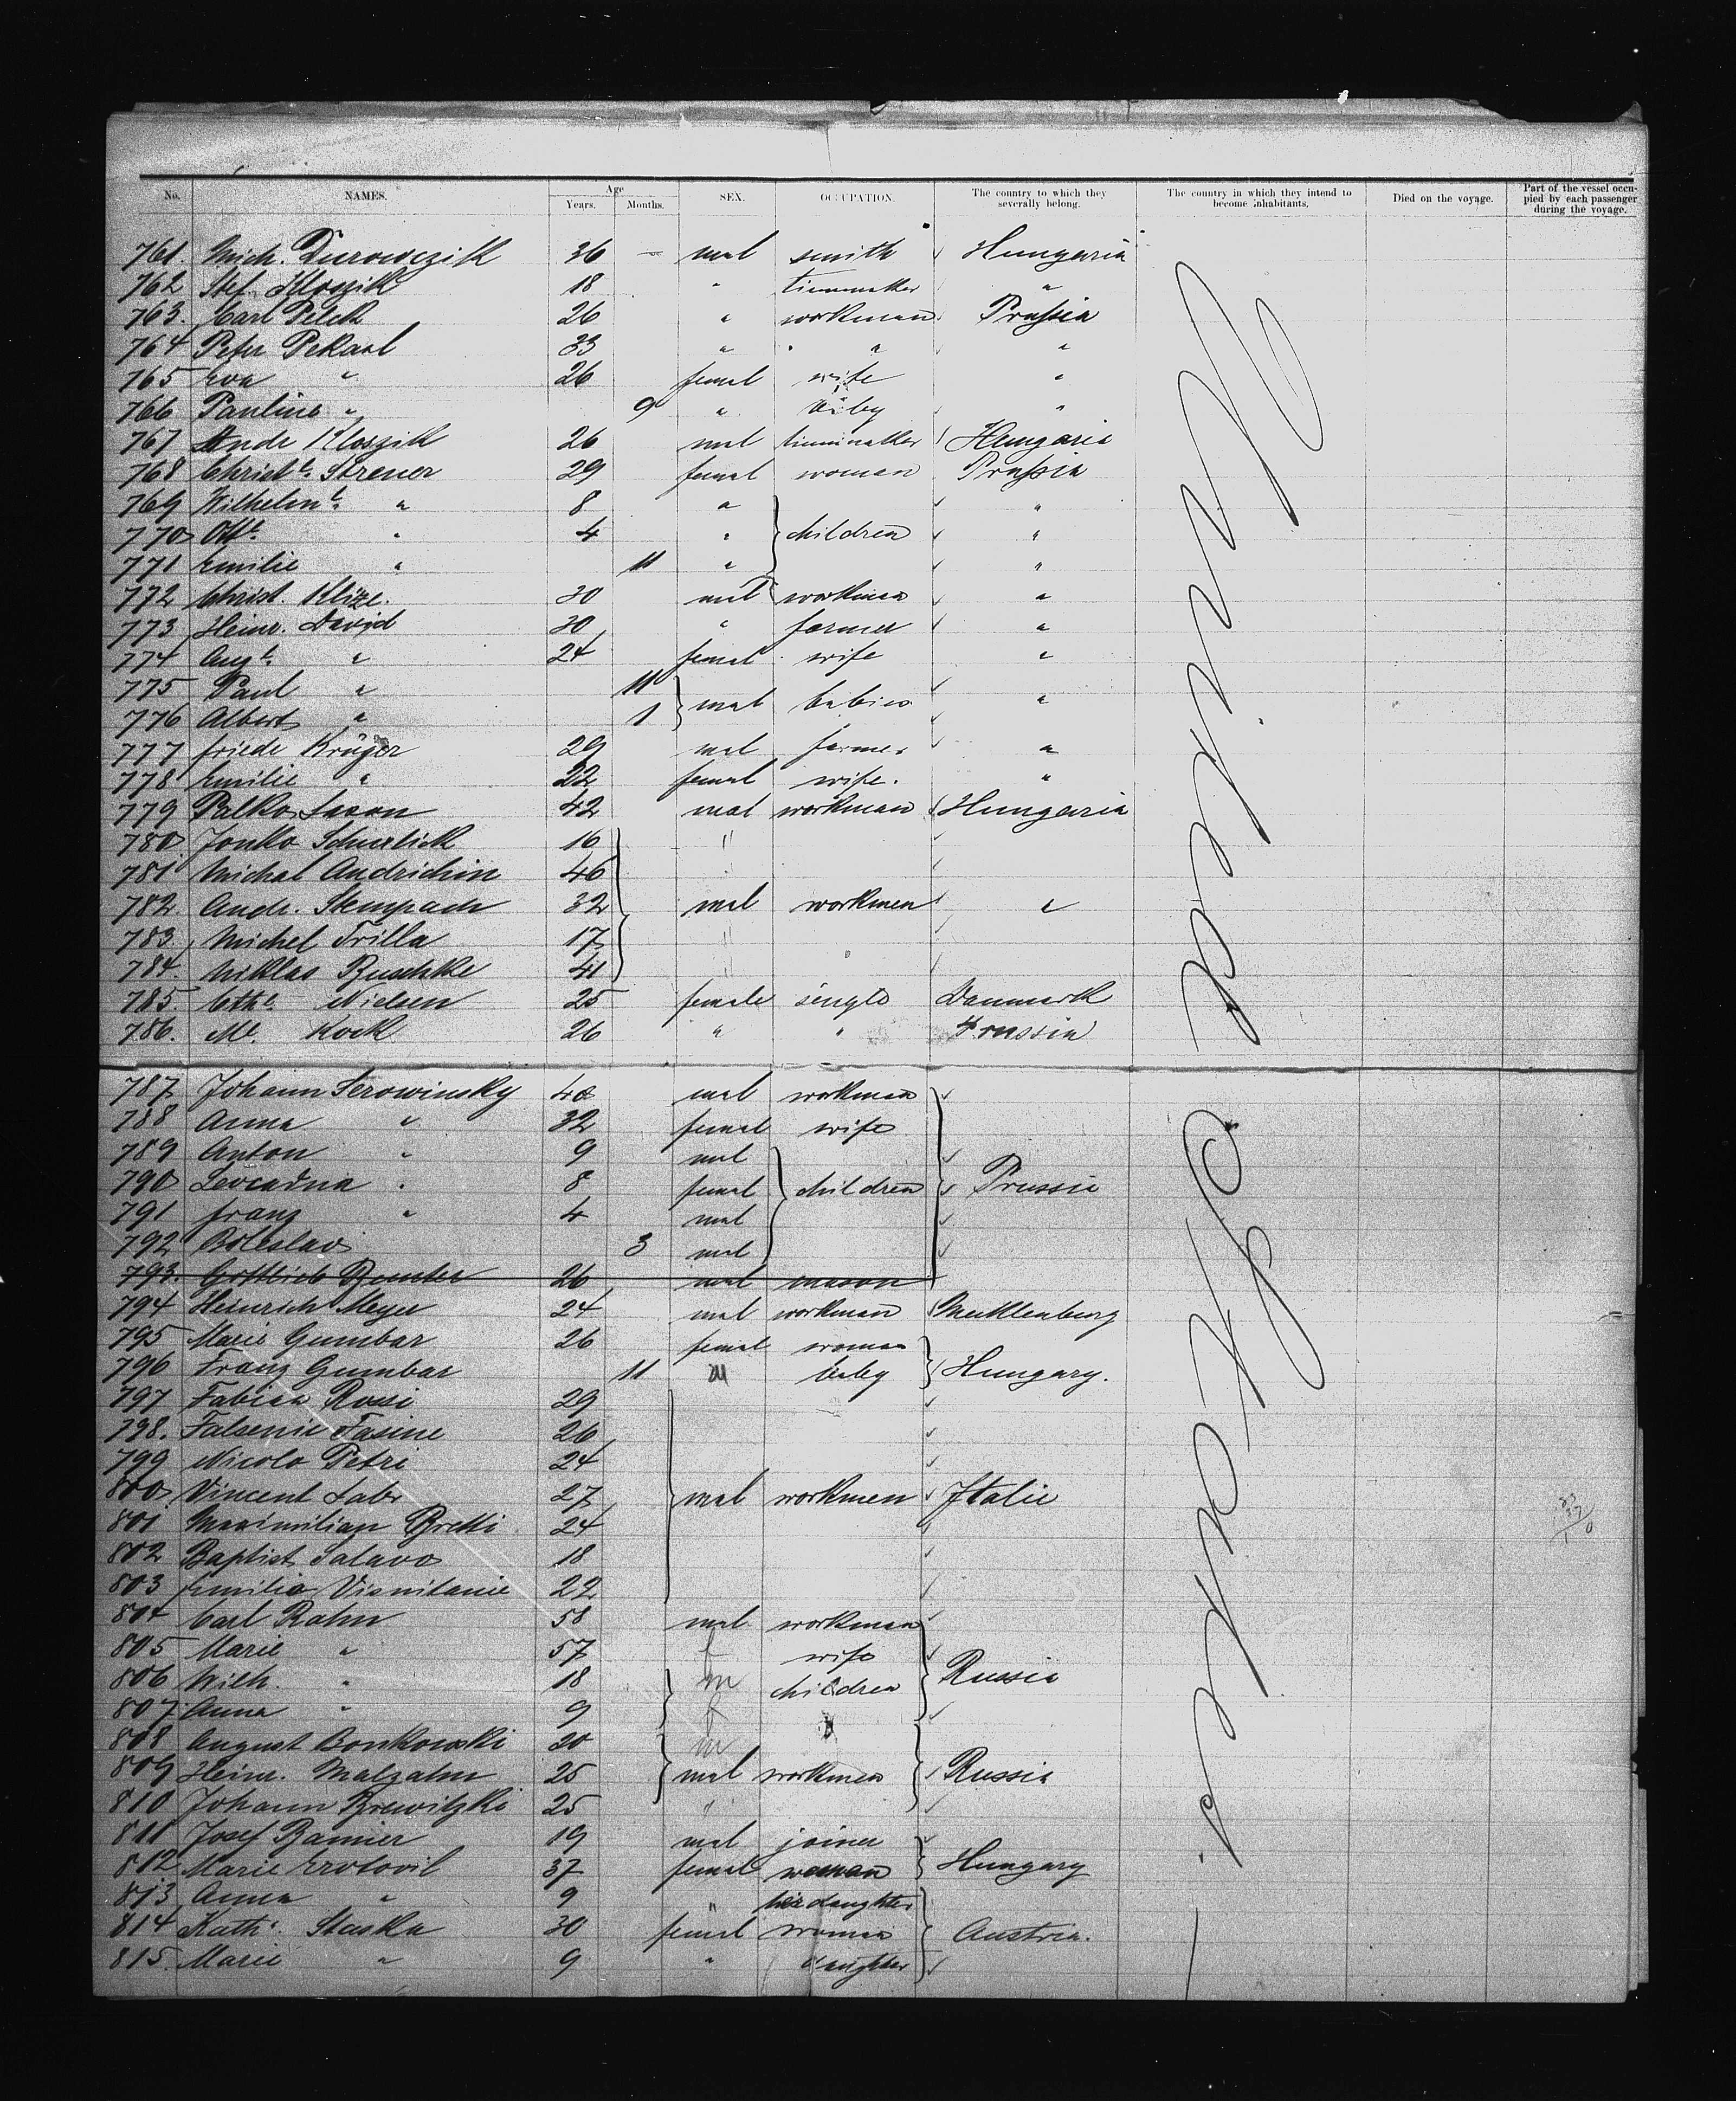 No. NAMES. Age Years. Months. SEX. OCCUPATION. The country to which they severally belong. The country in which they intend to become inhabitants. Died on the voyage. Part of the vessel occupied by each passenger during the voyage.
761. Mich. Durowczik 36 — mal smith Hungaria
762 Stef. Kloszik 18 " "
763. Carl Pilck 26 " workman Prussia
764 Peter Pekaal 33 " " "
765 Eva " 26 femal wife "
766 Pauline " 9 " baby "
767 Andr Kloszik 26 mal Hungaria
768 Christe. Strener 29 femal woman Prussia
769 Wilhelme. " 8 " "
770 Otte. " 4 " children "
771 Emilie " 11 " "
772 Christ. Klize. 30 mal workman "
773 Heinr. David 30 " farmer "
774 Auge. " 24 femal wife "
775 Paul " 11
776 Albert " 1 mal babies "
777 friede Krüger 29 mal farmer "
778 Emilie " 22 femal wife. "
779 Palko 42 mal workman Hungaria
780 Jonko 16 "
781 Michal Andrichin 46
782. Andr. Stempach 32 mal workmen "
783. Michel Trilla 17 "
784 Niklas Buschke 41 "
785 Cathe. Nielsen 25 female single Danmark
786. Me. Kock 26 " " Prussia
787 Johann Serowinsky 42 mal workman
788 Anna " 32 femal wife
789 Anton " 9 mal
790 Leocadia " 8 femal children Prussia
791 franz " 4 mal
792 Boleslav 3 mal
793. Gottlieb 26 mal mason
794 Heinrich Meyer 24 mal workman Mecklenburg
795 Marie Gumbar 26 femal woman
796 Franz Gumbar 11 M baby Hungary.
797 Fabian Rossi 29
798. Falsenie Fasine 26
799 Nicolo Petri 24
800 Vincent 27 mal workmen Italie
801 Maximilian Bretti 24
802 Baptist Salavo 18
803 Emilio 22
804 Carl Rahn 58 mal workman
805 Marie " 57 f wife
806 Wilh. " 18 m children Russia
807 Anna " 9 f "
808 August Bonkowski 20 m
809 Heinr. Malzahn 25 mal workmen Russia
810 Johann Brewitzki 25 "
811 Josef Banier 19 mal joiner
812 Marie 37 femal woman Hungary
813 Anna " 9 " her daughter
814 Kathe. Staska 30 femal woman Austria.
815. Marie " 9 " daughter